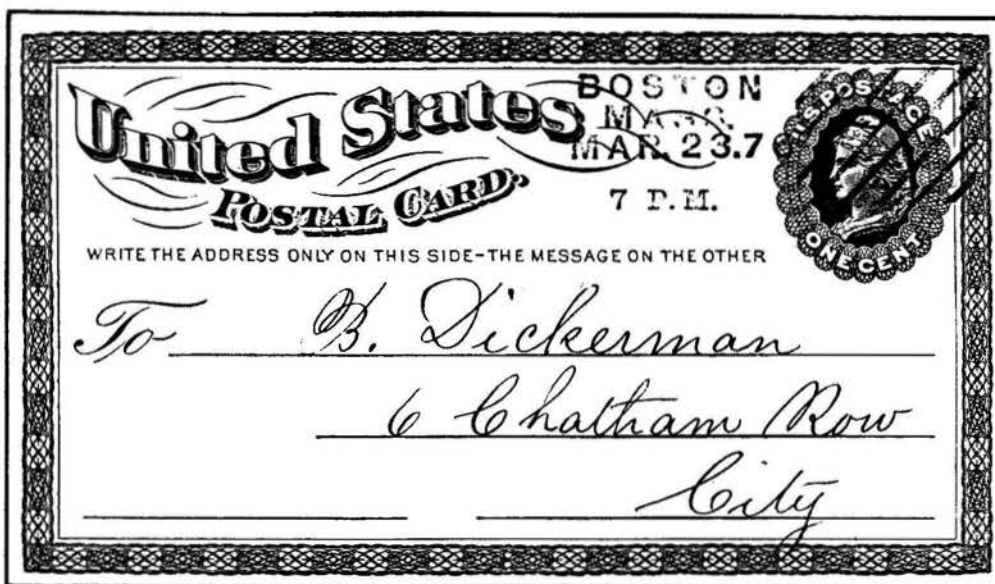 United States
POSTAL CARD.
BOSTON
MASS.
MAR. 23.7
7 P.M.
U.S. POSTAGE
ONE CENT
WRITE THE ADDRESS ONLY ON THIS SIDE-THE MESSAGE ON THE OTHER
To B. Dickerman
6 Chatham Row
City